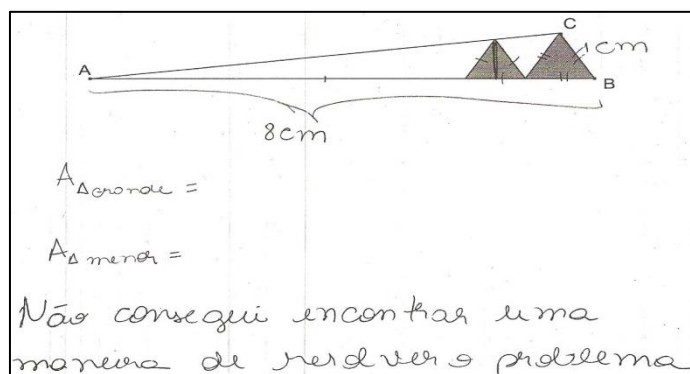 C
1cm
A
B
8cm
A△grande =
A△menor =
Não consegui encontrar uma
maneira de resolver o problema